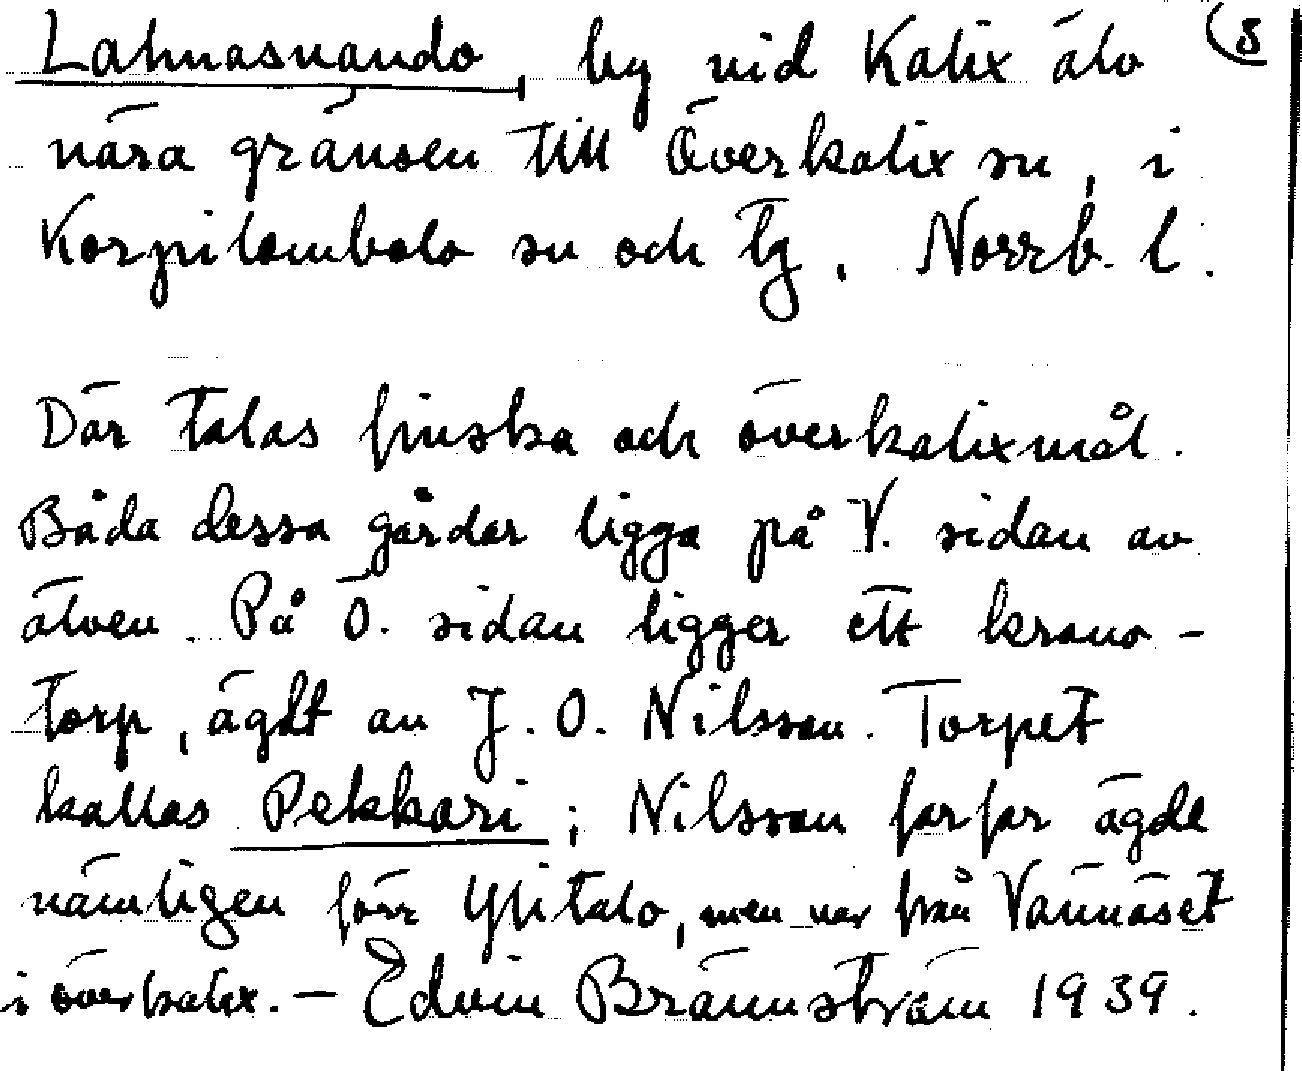 Lahnasuando, by vid Kalix älv (3
nära gränsen till Överkalix sn, i
Korpilombolo sn och tg, Norrb. l.
Där talas finska och överkalixmål.
Båda dessa gårdar ligga på V. sidan av
älven. På Ö. sidan ligger ett krono-
torp, ägdt av J. O. Nilsson. Torpet
kallas Pekkari; Nilsson farfar ägde
nämligen förr Ylitalo, men var från Vännäset
i överkalix. – Edvin Brännström 1939.